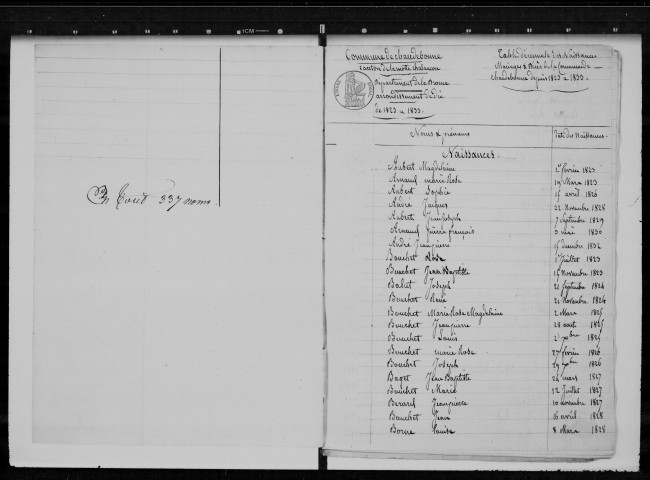 En tout 337 noms.
Commune de chaudebonne
Canton de lamotte chalancon
Département de la Drome
arrondissement de die
de 1823 à 1833.
Table décennale des Naissances
Mariages & Décès de la Commune de
chaudebonne depuis 1823 à 1833.
Noms & prénoms Date des Naissances.
Naissances.
Aubert Magdelaine février 1823
Arnaud marie Rose 19 Mars 1823
Aubert Sophie avril 1826
André Jacques 22 Novembre 1828
Aubert Jean Joseph 7 Septembre 1829
Arnaud pierre françois 1830
André Jean pierre décembre 1832
Bouchet Juillet 1823
Bouchet Jean Baptiste 15 Novembre 1823
Joseph 21 Septembre 1824
Bouchet René 21 Novembre 1824
Bouchet Marie Rose Magdelaine 2 Mars 1825
Bouchet Jean pierre 28 aout 1825
Bouchet Louis 1825
Bouchet marie Rose 27 février 1826
Bouchet Joseph 1826
Jean Baptiste 24 mars 1827
Bouchet Marie 12 Juillet 1827
Berard Jean pierre 10 novembre 1827
Bouchet Jean 16 avril 1828
Borne Louise 8 Mars 1828